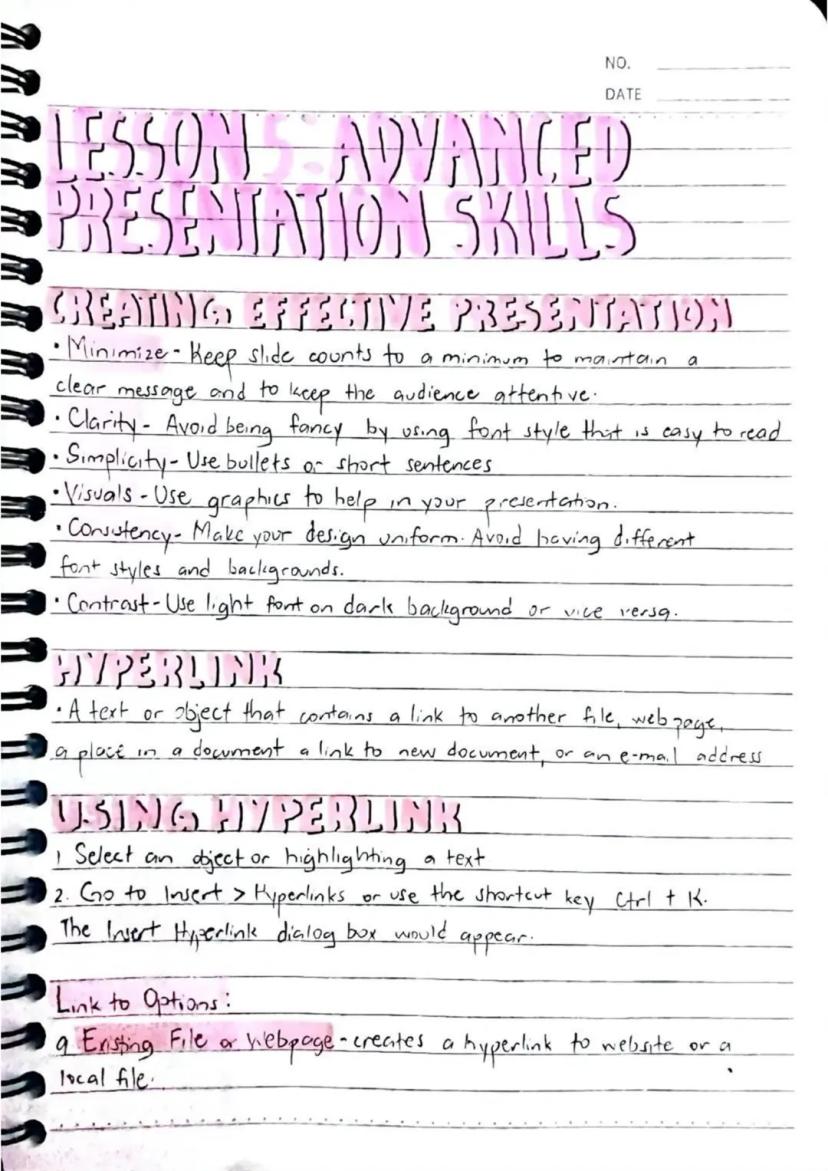 NO.
DATE
LESSON 5: ADVANCED
PRESENTATION SKILLS
CREATING EFFECTIVE PRESENTATION
• Minimize - Keep slide counts to a minimum to maintain a
clear message and to keep the audience attentive.
• Clarity - Avoid being fancy by using font style that is easy to read
• Simplicity - Use bullets or short sentences
• Visuals - Use graphics to help in your presentation.
• Consistency - Make your design uniform. Avoid having different
font styles and backgrounds.
• Contrast - Use light font on dark background or vice versa.
HYPERLINK
• A text or object that contains a link to another file, web page,
a place in a document a link to new document, or an e-mail address
USING HYPERLINK
1 Select an object or highlighting a text
2. Go to Insert > Hyperlinks or use the shortcut key Ctrl + K.
The Insert Hyperlink dialog box would appear.
Link to Options:
a Existing File or Webpage - creates a hyperlink to website or a
local file.